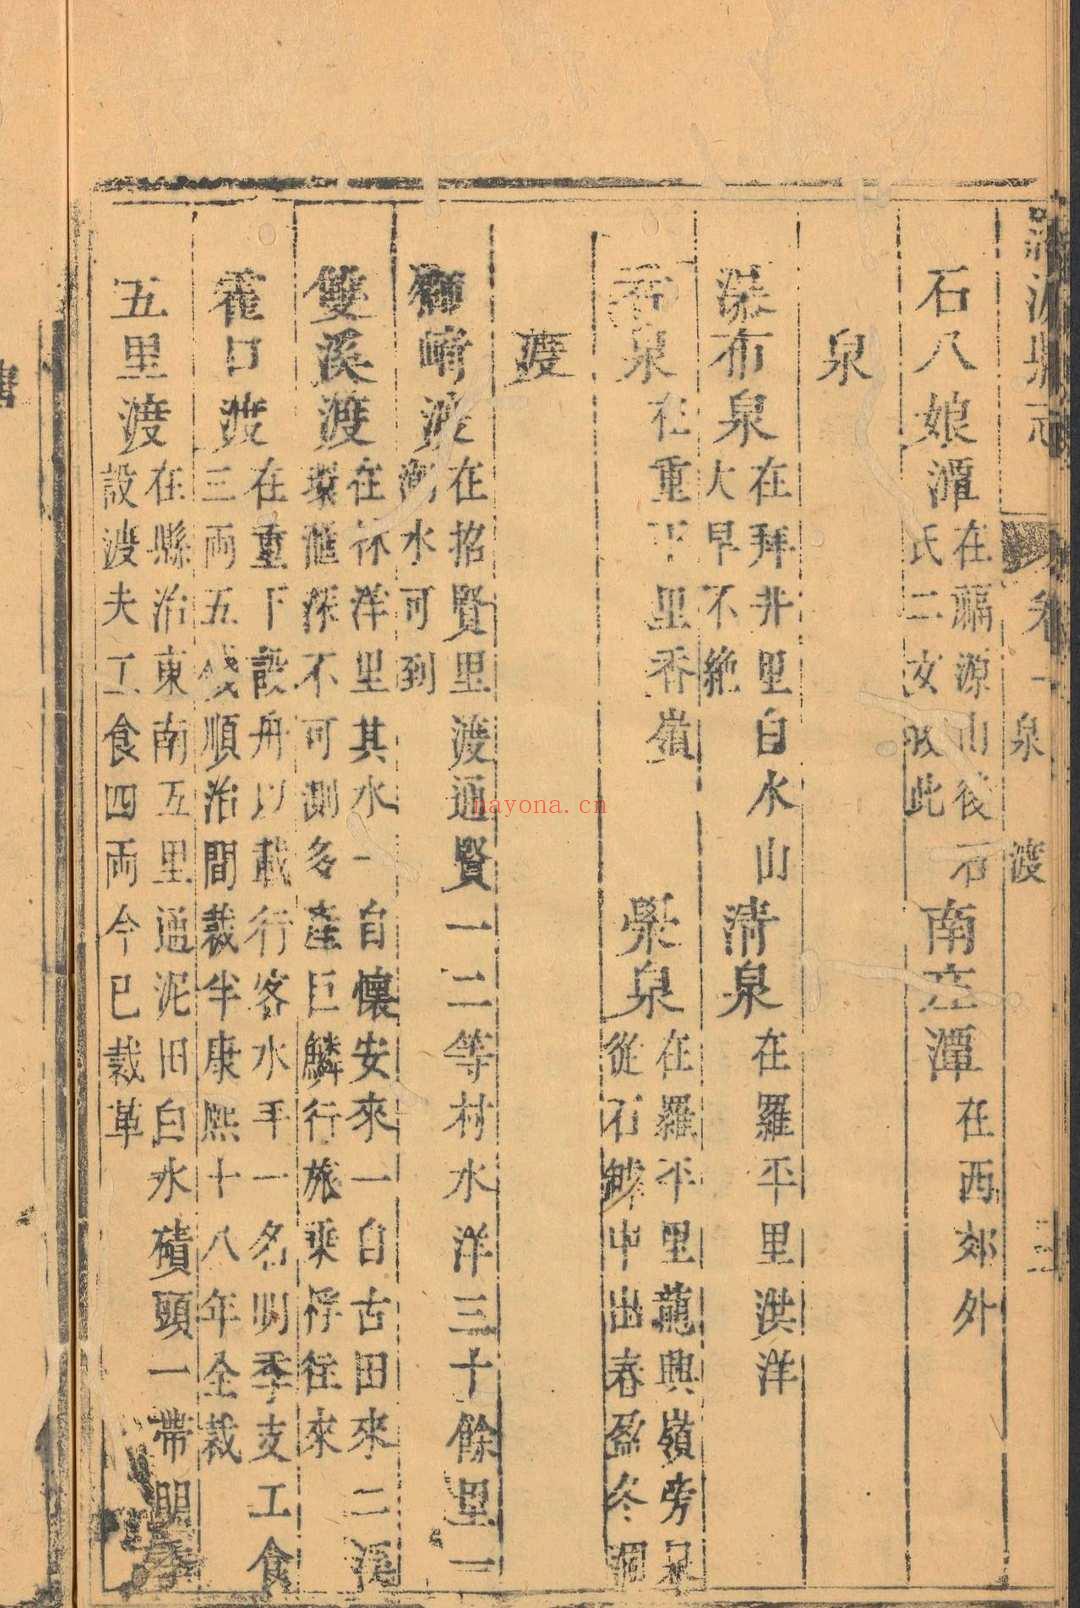 羅源縣志 卷一 泉 渡 三
石八娘潭 在福源山後石
氏二女收此
南庄潭 在西郊外
泉
瀑布泉 在拜井里白水山
大旱不絶
清泉 在羅平里洪洋
香泉 在重下里香嶺
槳泉 在羅平里龍興嶺旁泉
從石罅中出春盈冬涸
渡
獅﨑渡 在招賢里渡通賢一二等村水洋三十餘里一
潮水可到
雙溪渡 在林洋里其水一自懷安來一自古田來二溪
環滙深不可測多產巨鱗行旅乘桴往來
霍口渡 在重下設舟以載行客水手一名明季支工食
三両五錢順治間裁半康熙十八年全裁
五里渡 在縣治東南五里通泥旧白水磧頭一帶明季
設渡夫工食四両今已裁革
nayona.cn